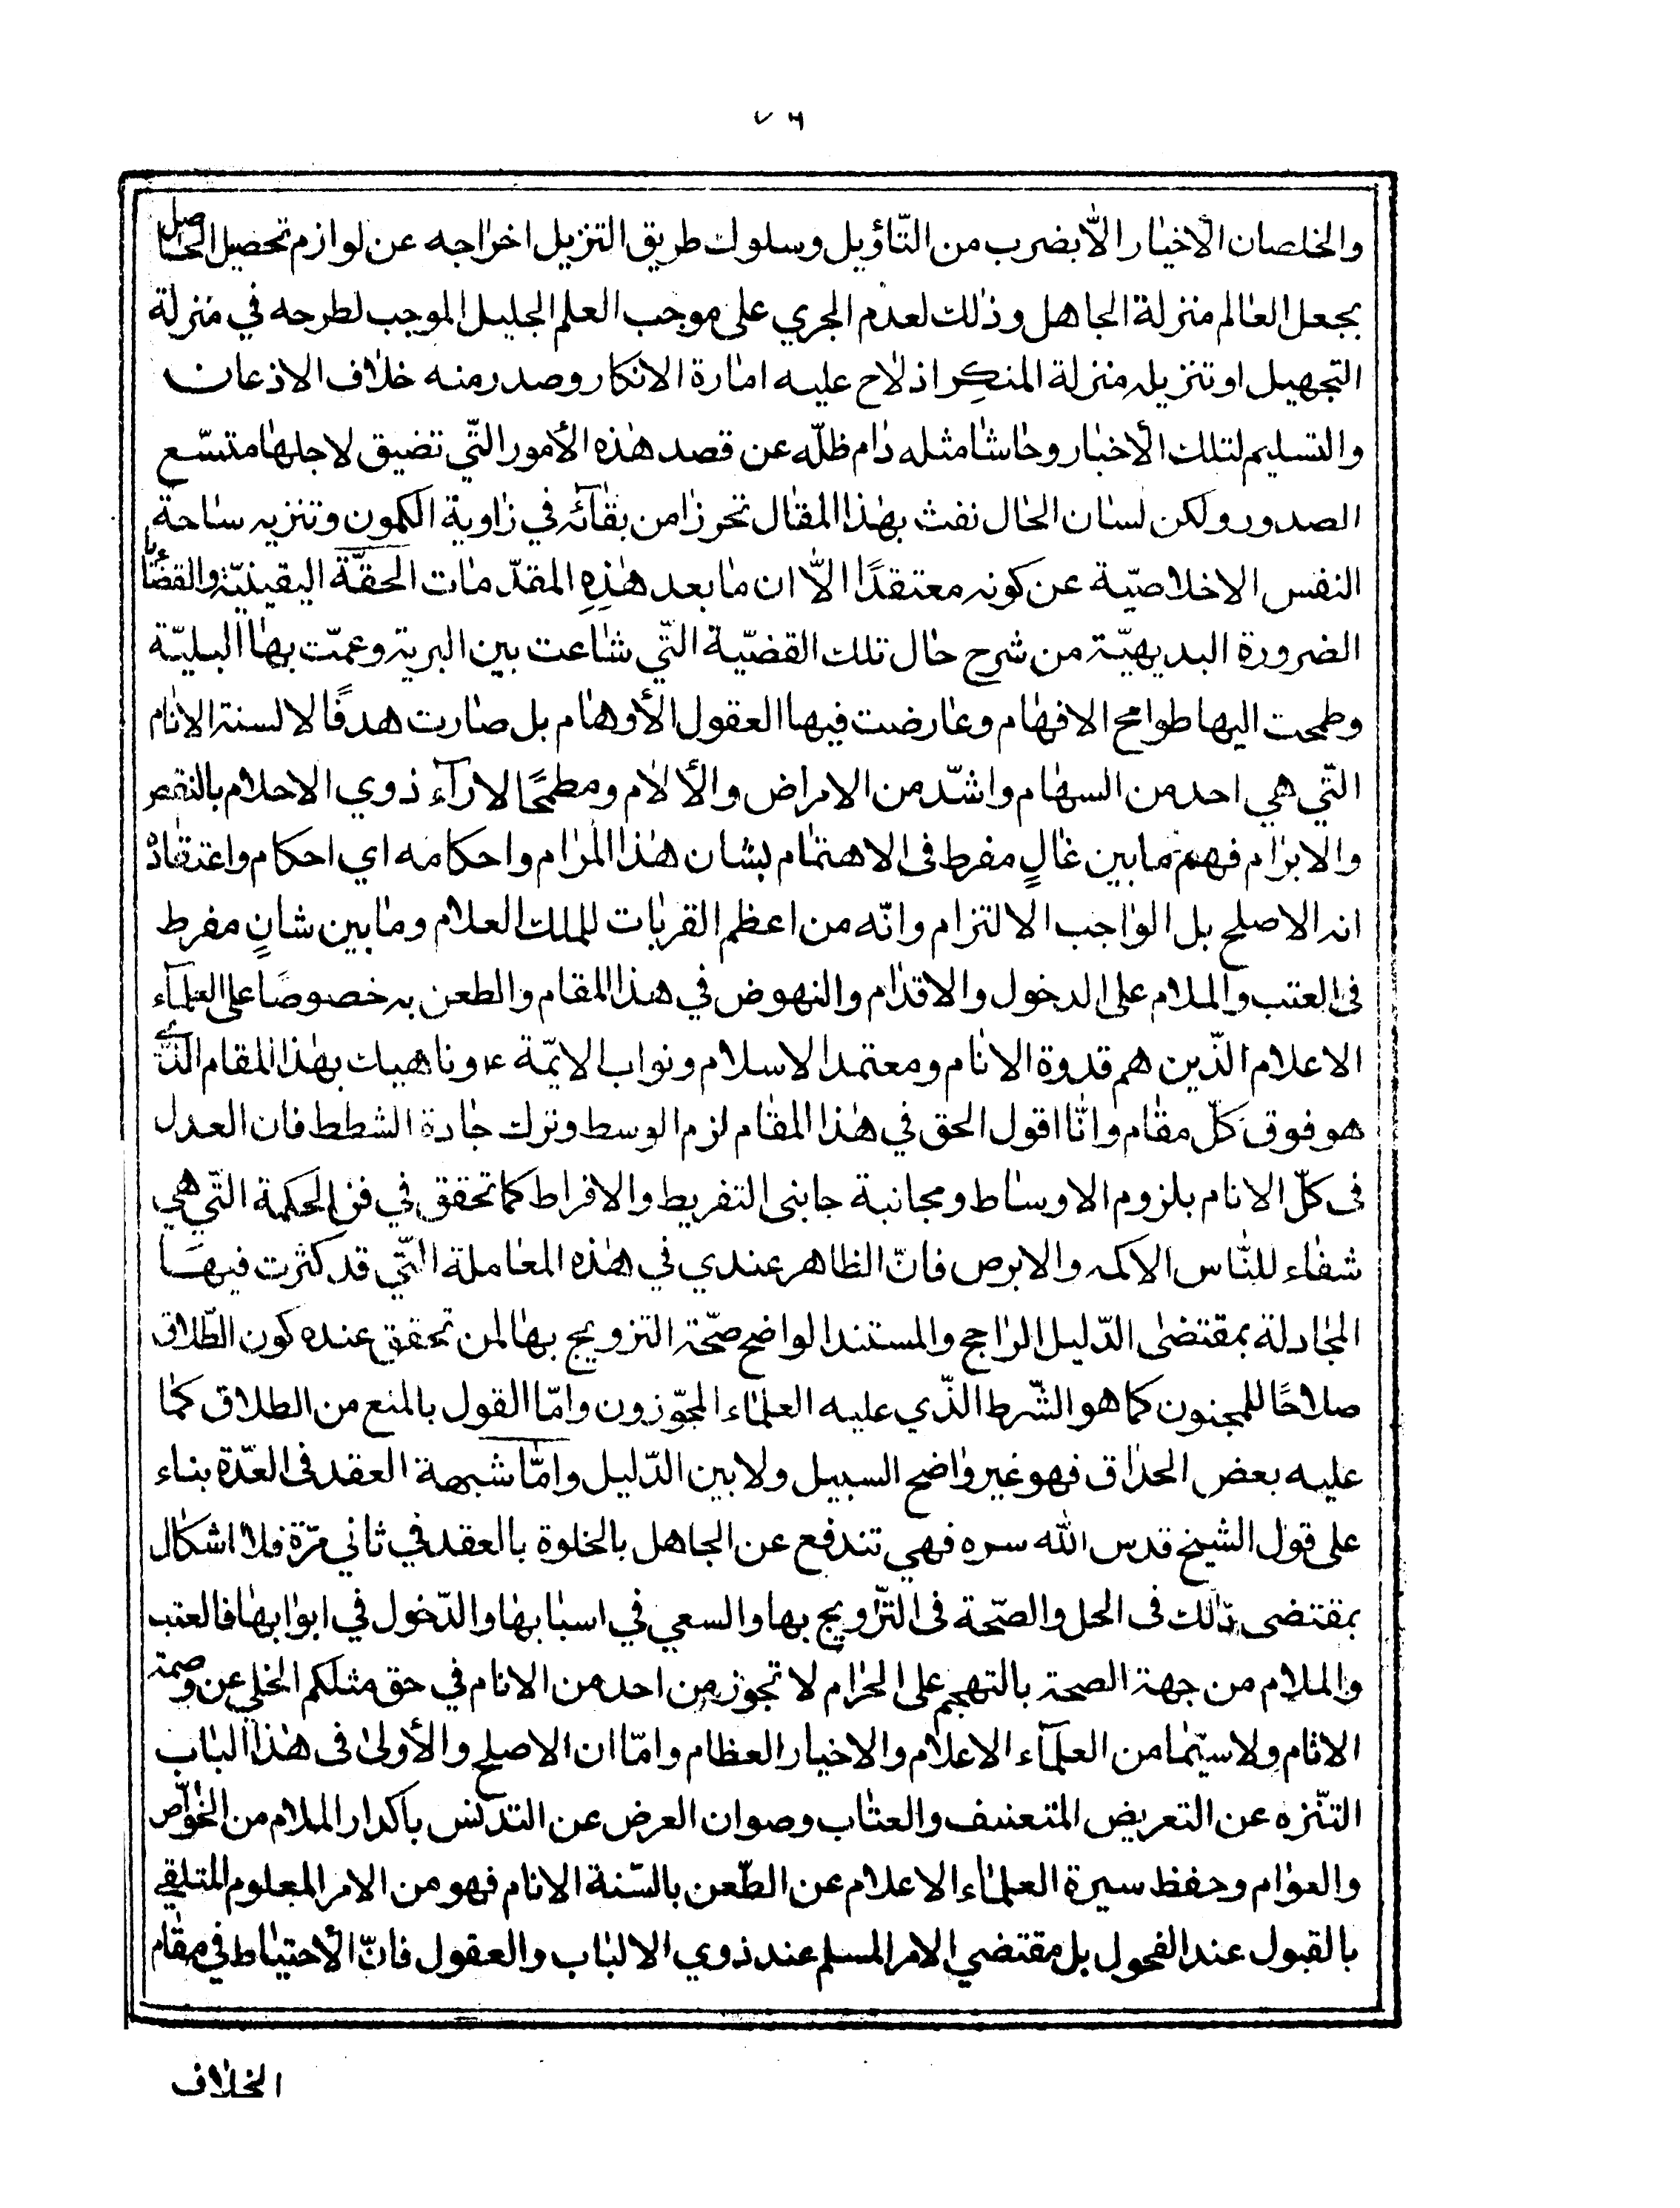 ٧٦
والخلصان الأخيار الّا بضرب من التّاؤيل وسلوك طريق التنزيل اخراجه عن لوازم تحصيل الحاصل
بجعل العالم منزلة الجاهل وذلك لعدم الجري على موجب العلم الجليل الموجب لطرحه في منزلة
التجهيل او تنزيله منزلة المنكِر اذ لاح عليه امارة الانكار وصدر منه خلاف الاذعان
والتسليم لتلك الأخبار وحاشا مثله دام ظلّه عن قصد هذه الأمور التّي تضيق لاجلها متسّع
الصدور ولكن لسان الحال نفث بهذا المقال تحرزا من بقائه في زاوية الكمون وتنزيه ساحة
النفس الاخلاصيّة عن كونه معتقدًا الّا ان ما بعد هذِهِ المقدّمات الحقّة اليقينيّة والقضايا
الضرورة البديهيّة من شرح حال تلك القضيّة التّي شاعت بين البرية وعمّت بها البليّة
وطمحت اليها طوامح الافهام وعارضت فيها العقول الأوهام بل صارت هدفًا لالسنة الانام
التّي هي احد من السهام واشدّ من الامراض والألام ومطمحًا لاراء ذوي الاحلام بالنقص
والابرام فهم ما بين غالٍ مفرط فى الاهتمام بشان هذا المرام واحكامه اي احكام واعتقاد
انه الاصلح بل الواجب الالتزام وانّه من اعظم القربات للملك العلام وما بين شانٍ مفرط
فى العتب والملام على الدخول والاقدام والنهوض في هذا المقام والطعن به خصوصًا على العلماء
الاعلام الّذين هم قدوة الانام ومعتمد الاسلام ونواب الايمّة ع وناهيك بهذا المقام الذّي
هو فوق كلّ مقام وانّا اقول الحق في هذا المقام لزم الوسط وترك جادة الشطط فان العدل
فى كلّ الانام بلزوم الاوساط ومجانبة جانبى التفريط والافراط كما تحقق في فن الحكمة التّي هي
شفاء للنّاس الاكمه والابرص فانّ الظاهر عندي في هذه المعاملة التّي قد كثرت فيها
المجادلة بمقتضى الدّليل الراجح والمستند الواضح صحّة التزويج بها لمن تحقق عنده كون الطّلاق
صلاحًا للمجنون كما هو الشّرط الذّي عليه العلماء المجوّزون وامّا القول بالمنع من الطلاق كما
عليه بعض الحذاق فهو غير واضح السبيل ولا بين الدّليل وامّا شبهة العقد فى العدّة بناء
على قول الشيخ قدس الله سره فهي تندفع عن الجاهل بالخلوة بالعقد في ثاني مرّة فلا اشكال
بمقتضى ذلك فى الحل والصّحة فى التّزويج بها والسعي في اسبابها والدّخول في ابوابها فالعتب
والملام من جهة الصحة بالتهجم على الحرام لا تجوز من احد من الانام في حق مثلكم الخلي عن وصمة
الاثام ولا سيّما من العلماء الاعلام والاخيار العظام وامّا ان الاصلح والأولى فى هذا الباب
التنّزه عن التعريض المتعسف والعتاب وصوان العرض عن التدنس باكدار الملام من الخواّص
والعوام وحفظ سيرة العلماء الاعلام عن الطّعن بالسّنة الانام فهو من الامر المعلوم المتلقي
بالقبول عند الفحول بل مقتضي الامر المسلم عند ذوي الالباب والعقول فانّ الأحتياط في مقام
الخلاف